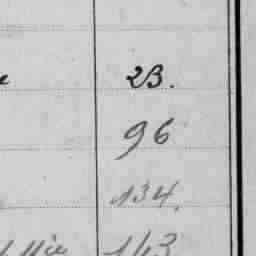 23.
96
134.
143